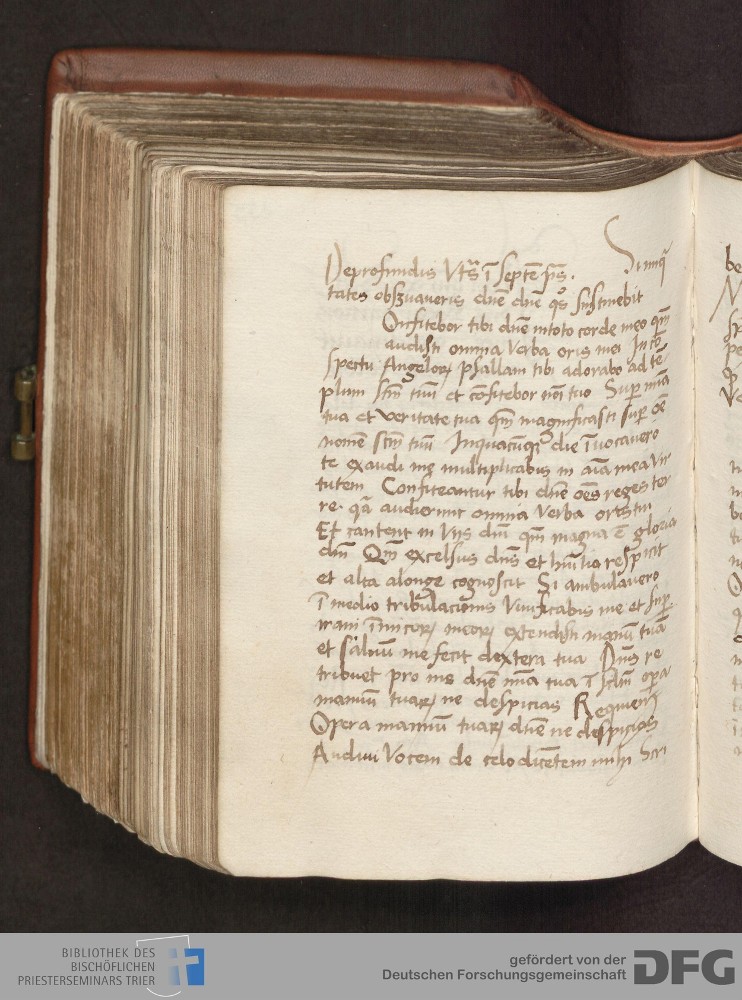 Deprofundis Vtš ī septē pš. Si iniqͣ
tates obszuaueris dn̄e dn̄e qˢ sustinebit
Onfitebor tibi dn̄e intoto corde meo qm̄
audisti omnia Verba oris mei In cō
spectu Angeloꝝ psallam tibi adorabo ad tē
plum stm̄ tuū et cōfitebor noī tuo Sup miā
tua et veritate tua qm̄ magnificasti sup oē
nomē stm̄ tuū Inquacūqꝫ die īuocauero
te exaudi me multiplicabis in aīa mea Vir
tutem Confiteantur tibi dn̄e oēs reges ter
re. qͣ audierunt omnia Verba oris tui
Et cantent in Vijs dn̄i qm̄ magna ē gloria
dn̄i Qm̄ excelsus dn̄s et huīlia respicit
et alta alonge cognoscit Si ambulauero
ī medio tribulacionis Viuificabis me et sup
iram īimicoꝝ meoꝝ extendisti manū tuā
et saluū me fecit dextera tua Dn̄s re
tribuet pro me dn̄e miā tua ī sclm̄ opa
manuū tuaꝝ ne despicias Requiem
Opera manuū tuaꝝ dn̄e ne despicias
Audiui Vocem de celo dicētem mihi Scri
be
N
sp
pe
Ve
BIBLIOTHEK DES
BISCHÖFLICHEN
PRIESTERSEMINARS TRIER
gefördert von der
Deutschen Forschungsgemeinschaft
DFG